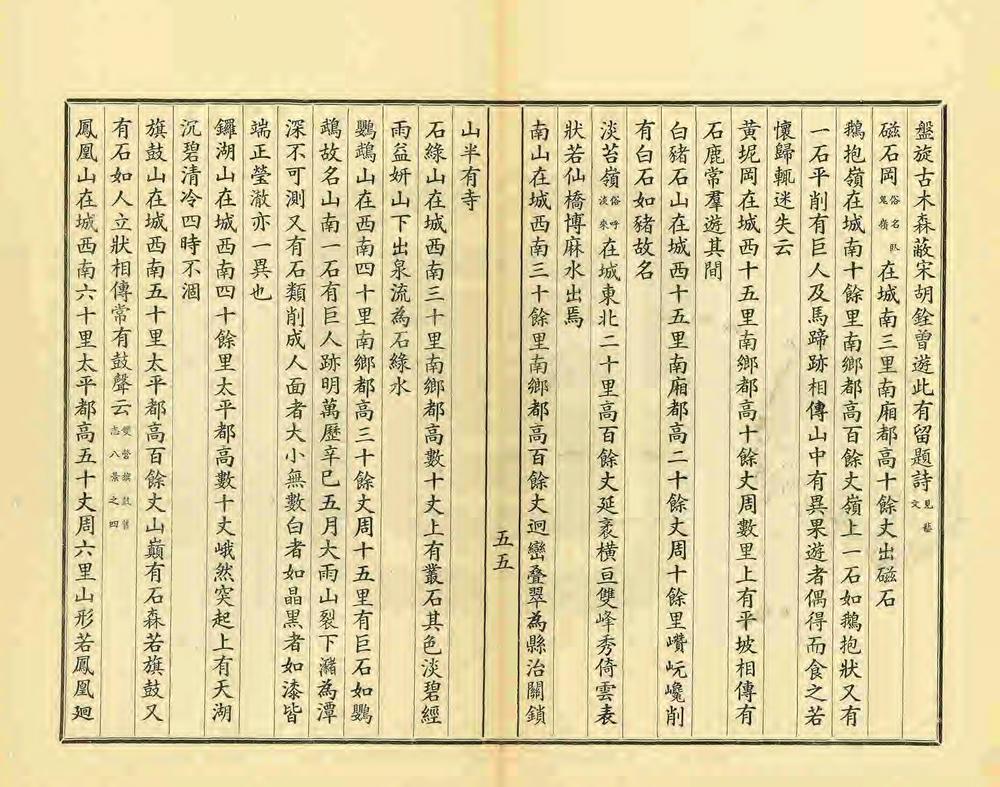 盤旋古木森蔽宋胡銓曽遊此有留題詩見藝文
磁石岡俗名臥鬼嶺在城南三里南廂都高十餘丈出磁石
鵝抱嶺在城南十餘里南鄉都高百餘丈嶺上一石如鵝抱狀又有
一石平削有巨人及馬蹄跡相傳山中有異果遊者偶得而食之若
懷歸輒迷失云
黃坭岡在城西十五里南鄉都高十餘丈周數里上有平坡相傳有
石鹿常羣遊其間
白豬石山在城西十五里南廂都高二十餘丈周十餘里巑岏巉削
有白石如豬故名
淡苔嶺俗呼淡來在城東北二十里高百餘丈延袤橫亘雙峰秀倚雲表
狀若仙橋博麻水出焉
南山在城西南三十餘里南鄉都高百餘丈迴巒叠翠為縣治關鎖
五五
山半有寺
石綠山在城西南三十里南鄉都高數十丈上有叢石其色淡碧經
雨益妍山下出泉流為石綠水
鸚鵡山在西南四十里南鄉都高三十餘丈周十五里有巨石如鸚
鵡故名山南一石有巨人跡明萬歷辛巳五月大雨山裂下瀦為潭
深不可測又有石類削成人面者大小無數白者如晶黑者如漆皆
端正瑩澈亦一異也
鑼湖山在城西南四十餘里太平都高數十丈峨然突起上有天湖
沉碧清冷四時不涸
旗鼓山在城西南五十里太平都高百餘丈山巔有石森若旗鼓又
有石如人立狀相傳常有鼓聲云雙營旗鼓舊志八景之四
鳳凰山在城西南六十里太平都高五十丈周六里山形若鳳凰廻